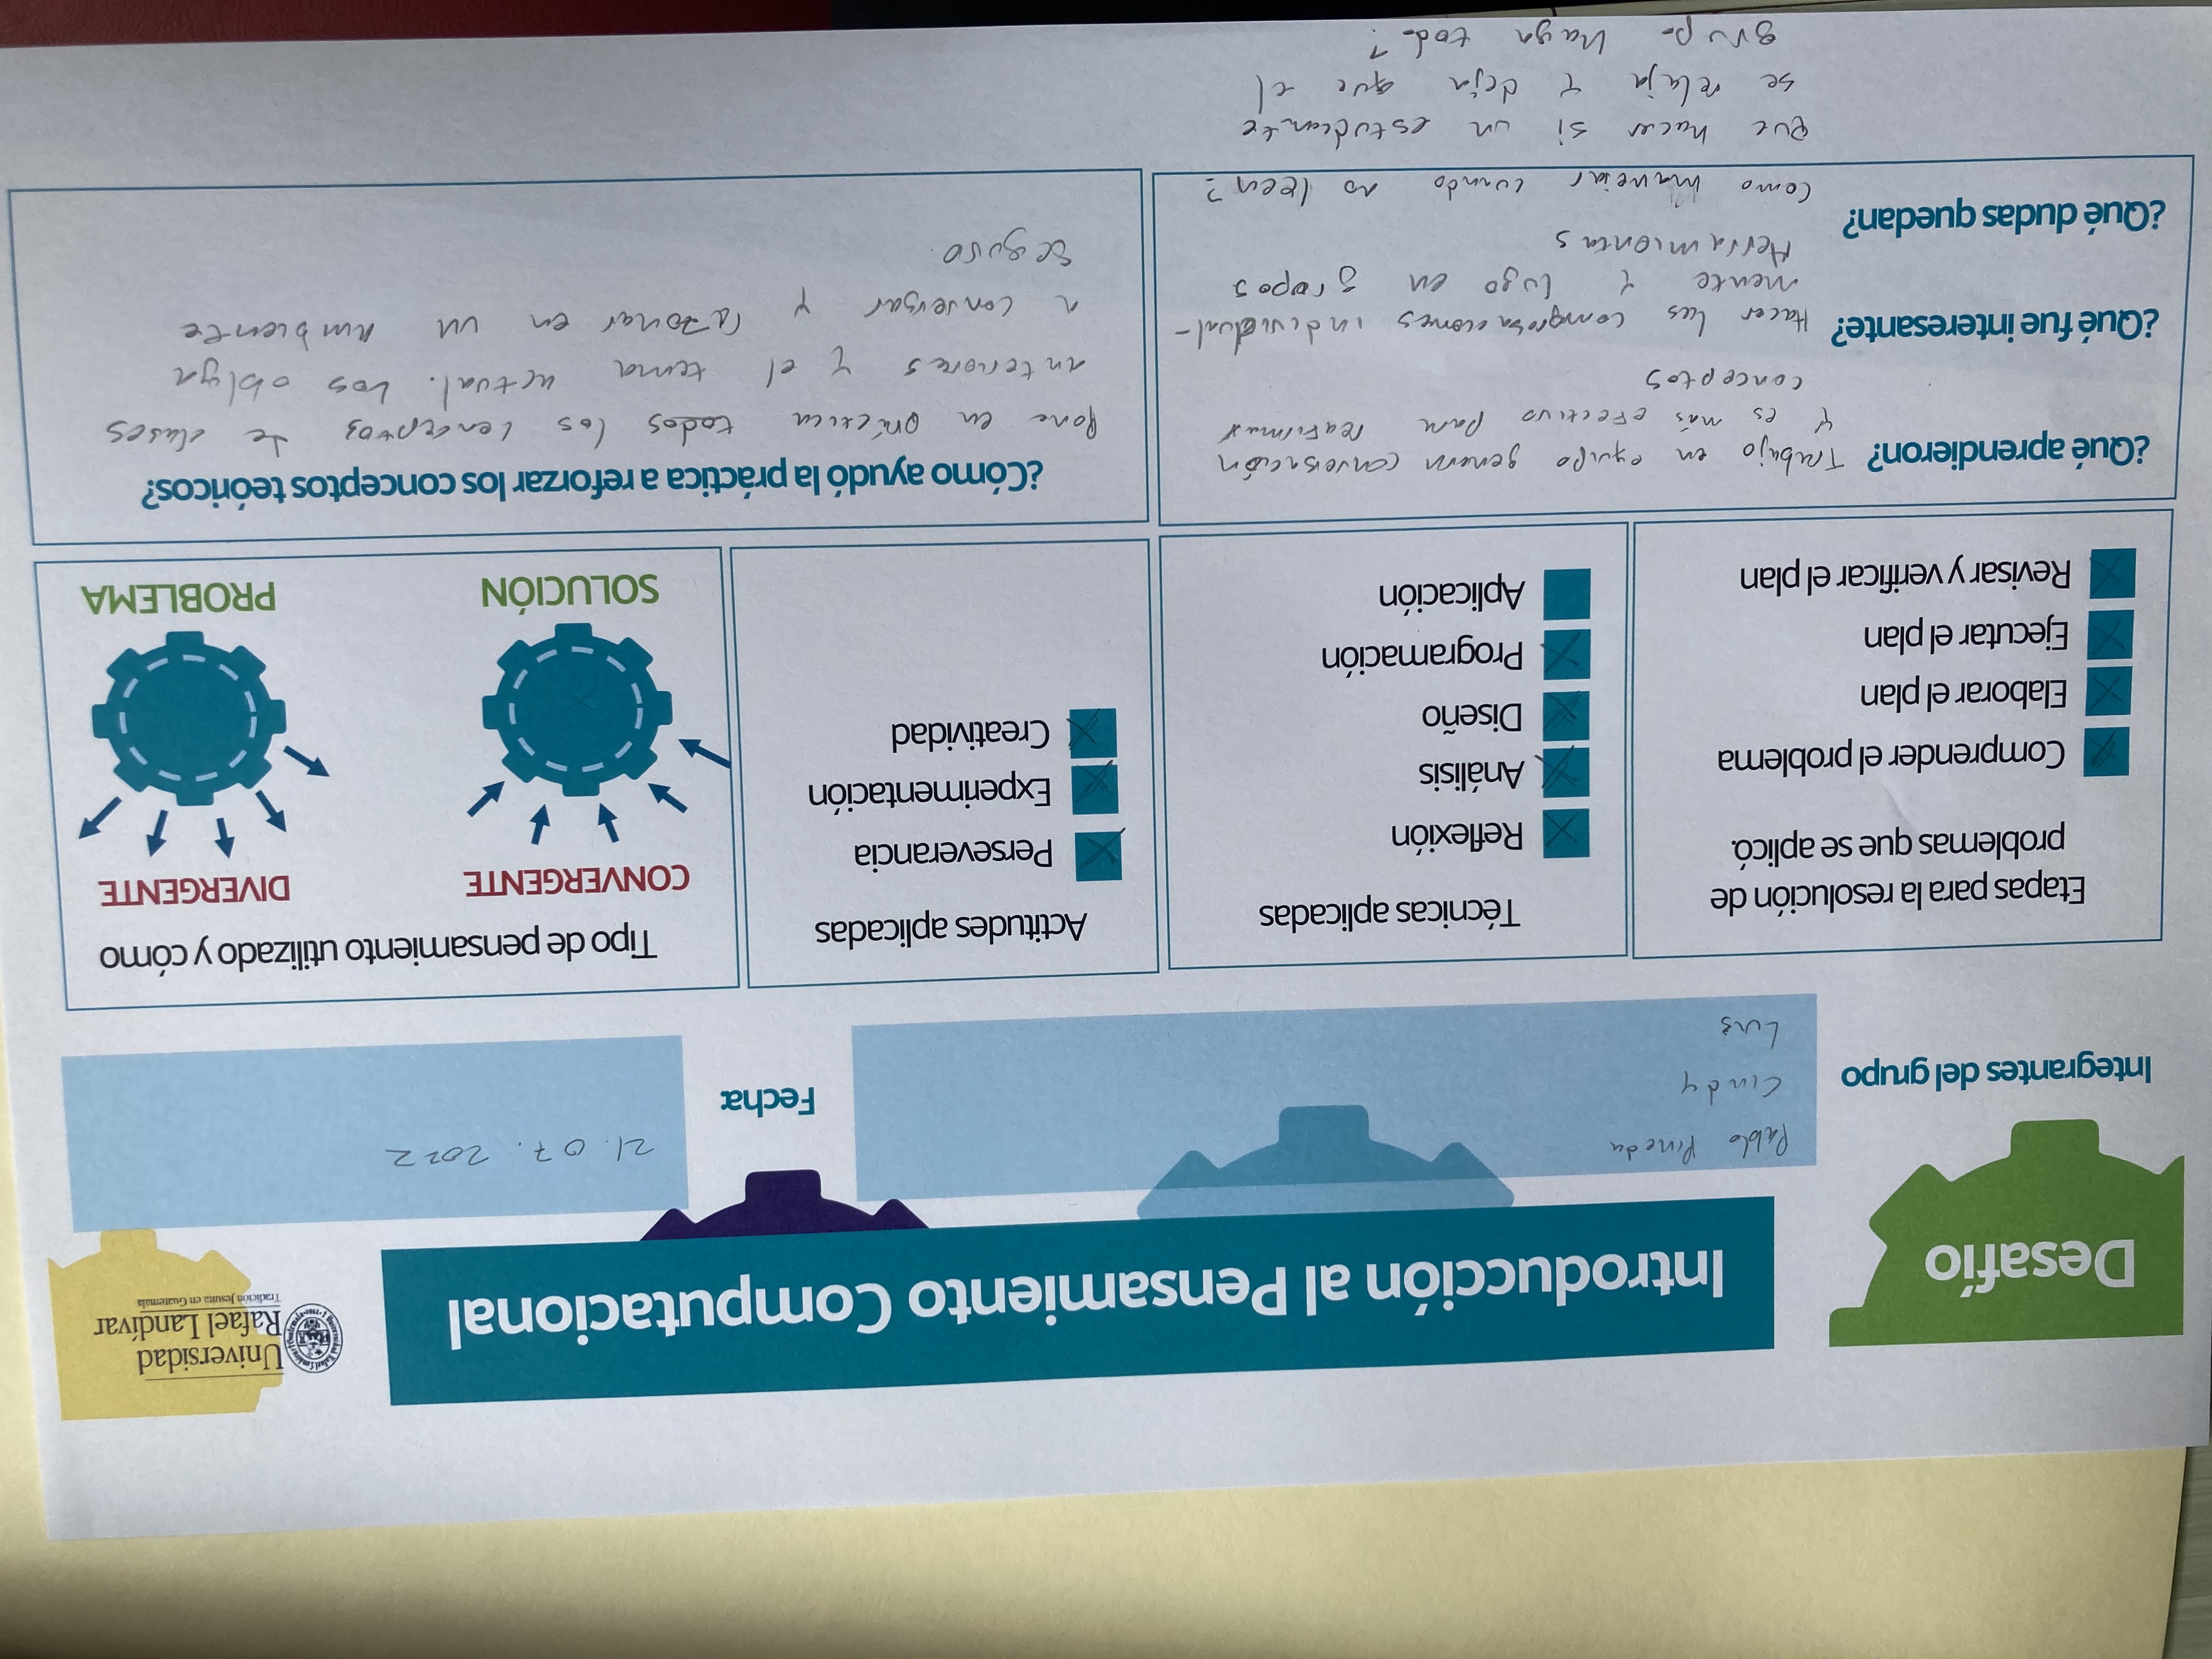 Desafío
Introducción al Pensamiento Computacional
Universidad
Rafael Landívar
Tradición Jesuita en Guatemala
Integrantes del grupo
Pablo Pineda
Cindy
Luis
Fecha:
21.07.2022
Etapas para la resolución de
problemas que se aplicó.
Comprender el problema
Elaborar el plan
Ejecutar el plan
Revisar y verificar el plan
Técnicas aplicadas
Reflexión
Análisis
Diseño
Programación
Aplicación
Actitudes aplicadas
Perseverancia
Experimentación
Creatividad
Tipo de pensamiento utilizado y cómo
CONVERGENTE
DIVERGENTE
SOLUCIÓN
PROBLEMA
¿Qué aprendieron?
Trabajo en equipo genera conversación
y es más efectivo para reafirmar
conceptos
¿Qué fue interesante?
Hacer las comprobaciones individual-
mente y luego en grupos
Herramientas
¿Qué dudas quedan?
Como manejar cuando no leen?
Que hacer si un estudiante
se relaja y deja que el
grupo haga todo?
¿Cómo ayudó la práctica a reforzar los conceptos teóricos?
Pone en práctica todos los conceptos de clases
anteriores y el tema actual. Los obliga
a conversar y razonar en un ambiente
seguro.